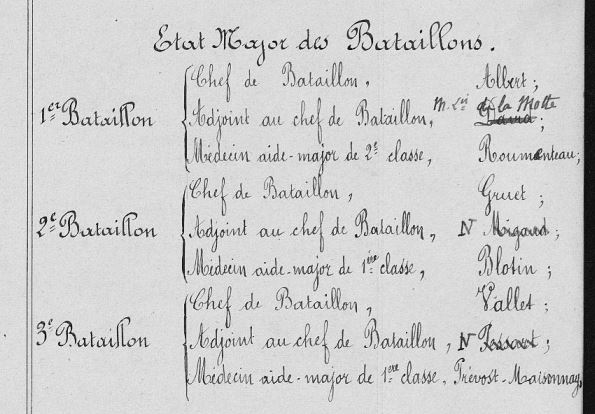 Etat Major des Bataillons.
Chef de Bataillon, Albert;
1er Bataillon Adjoint au chef de Bataillon, de la Motte;
Médecin aide-major de 2e classe, Roumenteau;
Chef de Bataillon, Gruet;
2e Bataillon Adjoint au chef de Bataillon, N Migaud;
Médecin aide-major de 1ère classe, Blotin;
Chef de Bataillon, Vallet;
3e Bataillon Adjoint au chef de Bataillon, N
Médecin aide-major de 1ere classe, Prévost-Maisonnay,